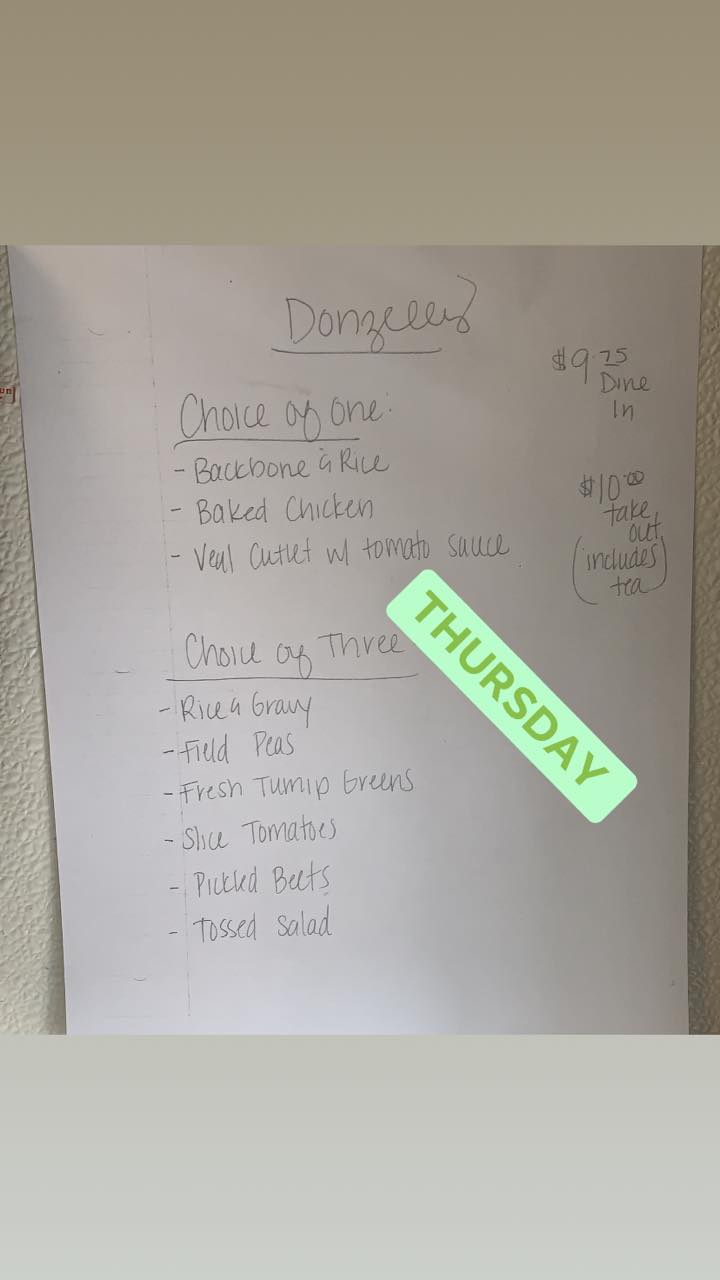 Donzelles
$9.75
Dine
In
Choice of One:
- Backbone & Rice
- Baked Chicken
- Veal Cutlet w/ tomato sauce
$10.00
take
out
(includes
tea)
THURSDAY
Choice of Three
- Rice & Gravy
- Field Peas
- Fresh Turnip Greens
- Slice Tomatoes
- Pickled Beets
- Tossed Salad